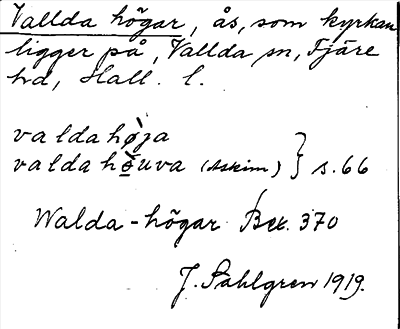 Vallda högar, ås, som kyrkan
ligger på, Vallda sn, Fjäre
hd, Hall. l.
valdahø̀ja
valdahèuva (Askim) } s. 66
Walda-högar Bex. 370
J. Sahlgren 1919.